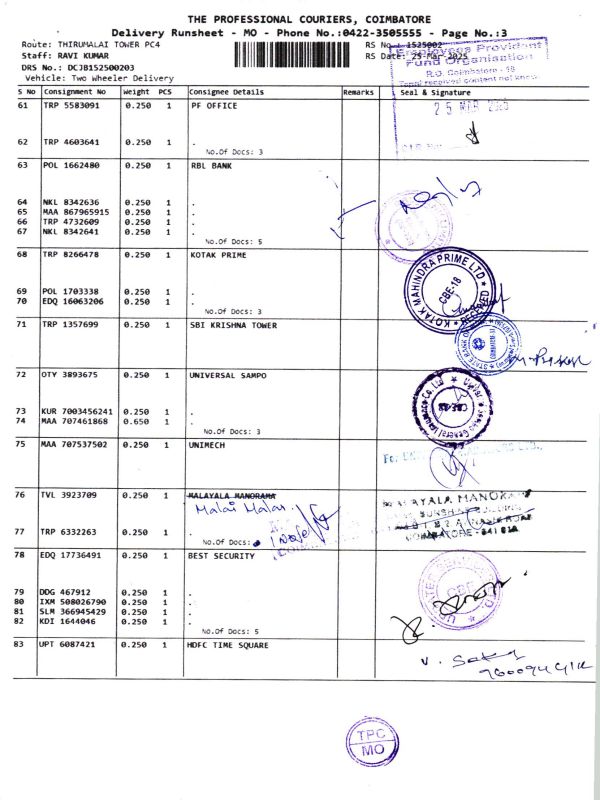 THE PROFESSIONAL COURIERS, COIMBATORE
Delivery Runsheet - MO - Phone No.:0422-3505555 - Page No.:3
Route: THIRUMALAI TOWER PC4
RS No 1525002
Staff: RAVI KUMAR
RS Date: 25-Mar-2025
DRS No.: DCJB152500203
Vehicle: Two Wheeler Delivery
Employees Provident
Fund Organisation
R.O. Coimbatore - 18
Tapal received content not known
25 MAR
S No Consignment No Weight PCS Consignee Details Remarks Seal & Signature
61 TRP 5583091 0.250 1 PF OFFICE
62 TRP 4603641 0.250 1 .
No.Of Docs: 3
63 POL 1662480 0.250 1 RBL BANK
64 NKL 8342636 0.250 1 .
65 MAA 867965915 0.250 1 .
66 TRP 4732609 0.250 1 .
67 NKL 8342641 0.250 1 .
No.Of Docs: 5
68 TRP 8266478 0.250 1 KOTAK PRIME
69 POL 1703338 0.250 1 .
70 EDQ 16063206 0.250 1 .
No.Of Docs: 3
KOTAK MAHINDRA PRIME LTD
CBE-18
RECEIVED
71 TRP 1357699 0.250 1 SBI KRISHNA TOWER
72 OTY 3893675 0.250 1 UNIVERSAL SAMPO
73 KUR 7003456241 0.250 1 .
74 MAA 707461868 0.650 1 .
No.Of Docs: 3
75 MAA 707537502 0.250 1 UNIMECH
76 TVL 3923709 0.250 1 MALAYALA MANORAMA
Malai Malar
77 TRP 6332263 0.250 1 .
No.Of Docs:
MALAYALA MANORAMA
SUNSHINE BUILDING
COIMBATORE - 641 018
78 EDQ 17736491 0.250 1 BEST SECURITY
79 DDG 467912 0.250 1 .
80 IXM 508026790 0.250 1 .
81 SLM 366945429 0.250 1 .
82 KDI 1644046 0.250 1 .
No.Of Docs: 5
CBE
83 UPT 6087421 0.250 1 HDFC TIME SQUARE
TPC
MO